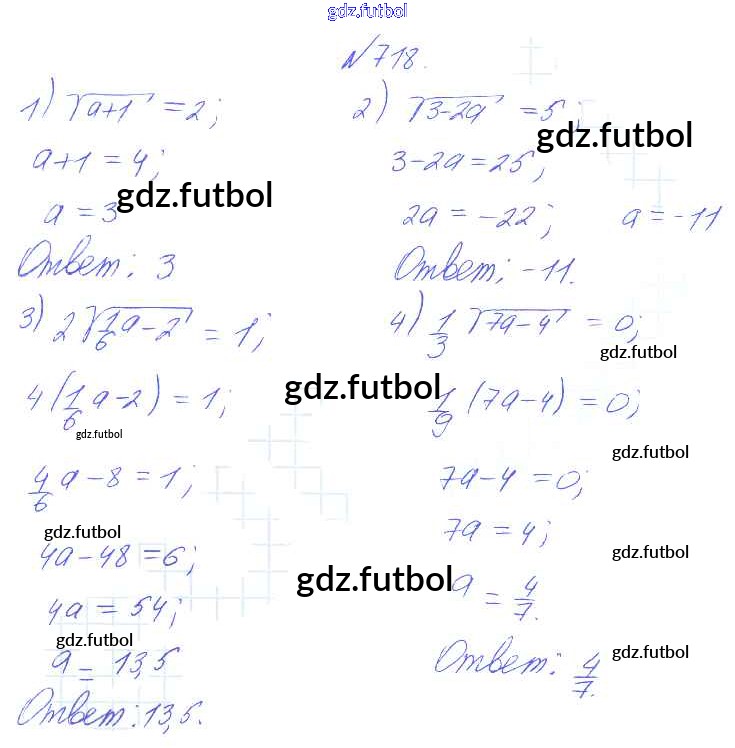 gdz.futbol
N 718.
1) √(a+1) = 2;
a+1 = 4;
gdz.futbol
a = 3
Ответ: 3
2) √(3-2a) = 5;
gdz.futbol
3-2a = 25;
2a = -22; a = -11
Ответ: -11.
3) 2√(1/6 a - 2) = 1;
4(1/6 a - 2) = 1;
gdz.futbol
gdz.futbol
4/6 a - 8 = 1;
gdz.futbol
4a - 48 = 6;
4a = 54;
gdz.futbol
a = 13,5
Ответ: 13,5.
4) 1/3 √(7a-4) = 0;
gdz.futbol
1/9 (7a-4) = 0;
gdz.futbol
7a-4 = 0;
7a = 4;
gdz.futbol
gdz.futbol
a = 4/7.
gdz.futbol
Ответ: 4/7.